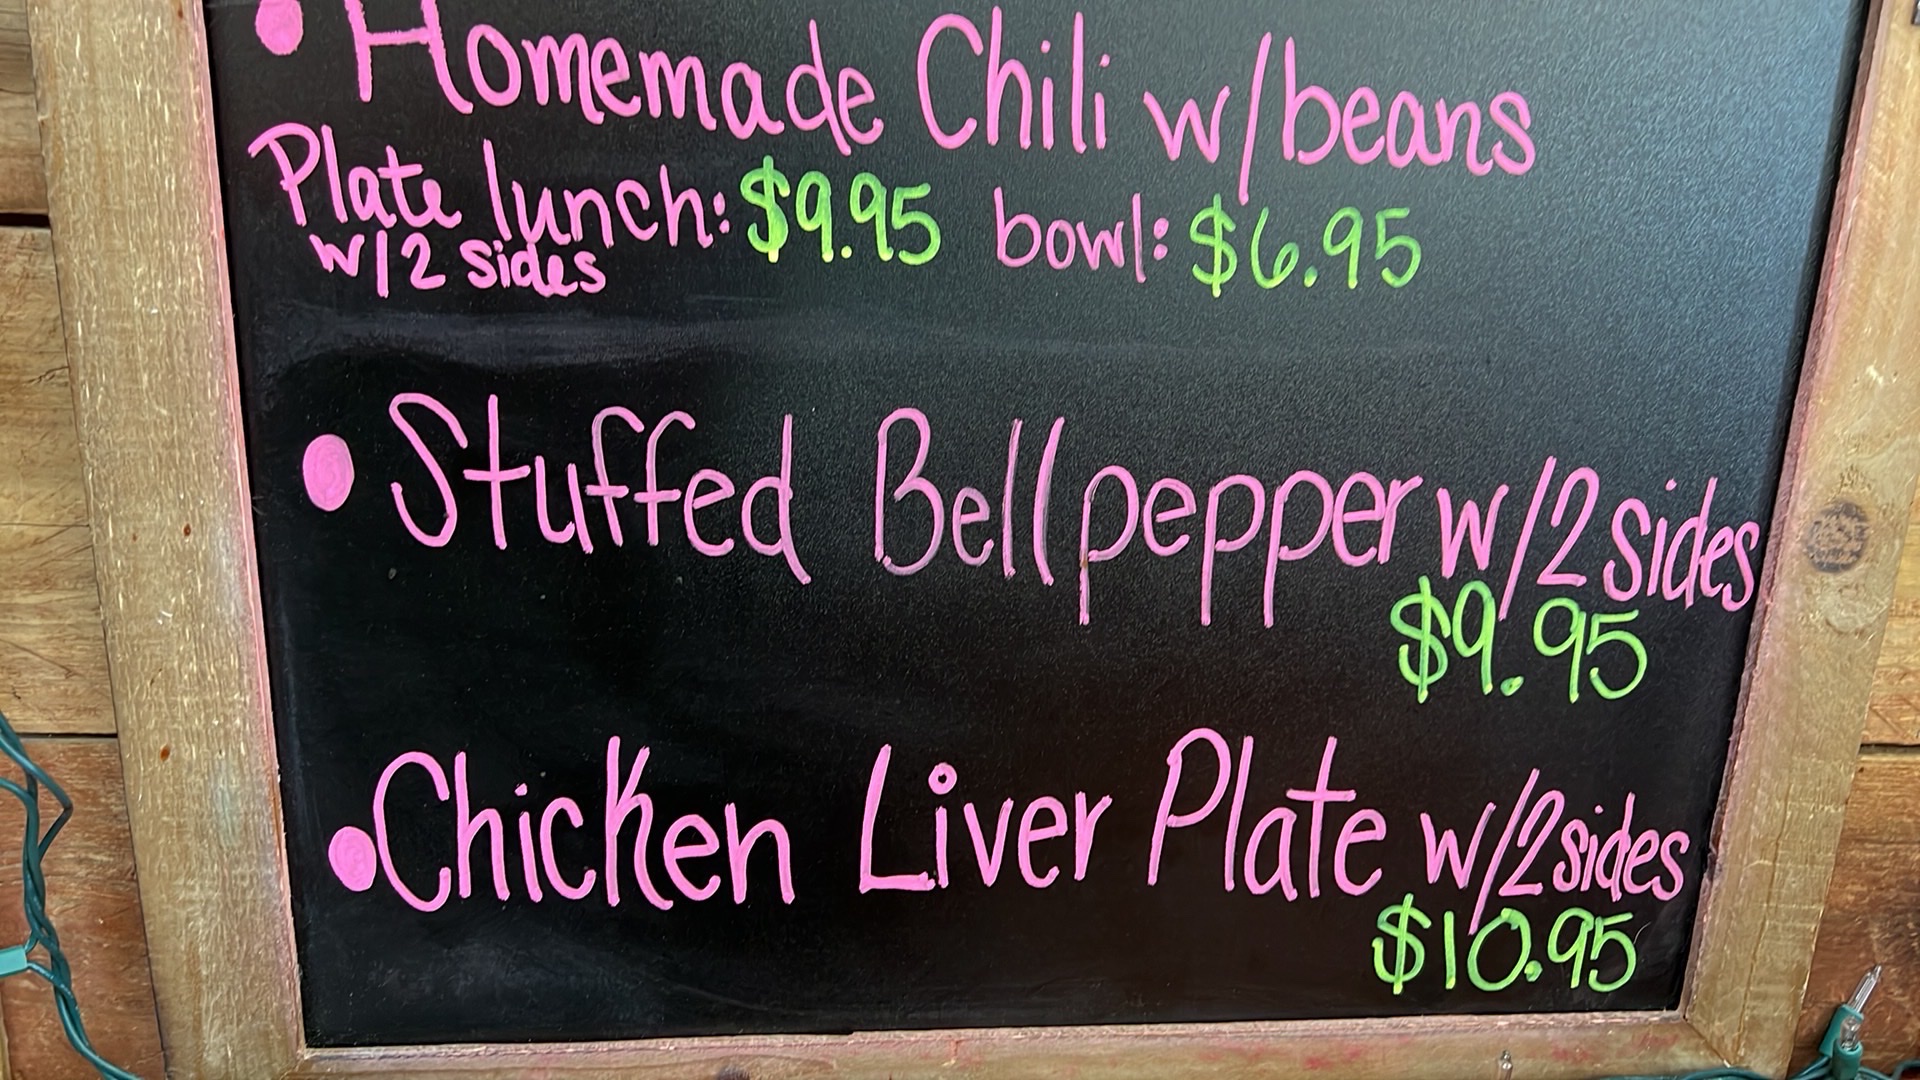 • Homemade Chili w/beans
Plate lunch: $9.95 bowl: $6.95
w/2 sides
• Stuffed Bellpepper w/2 sides
$9.95
• Chicken Liver Plate w/2 sides
$10.95